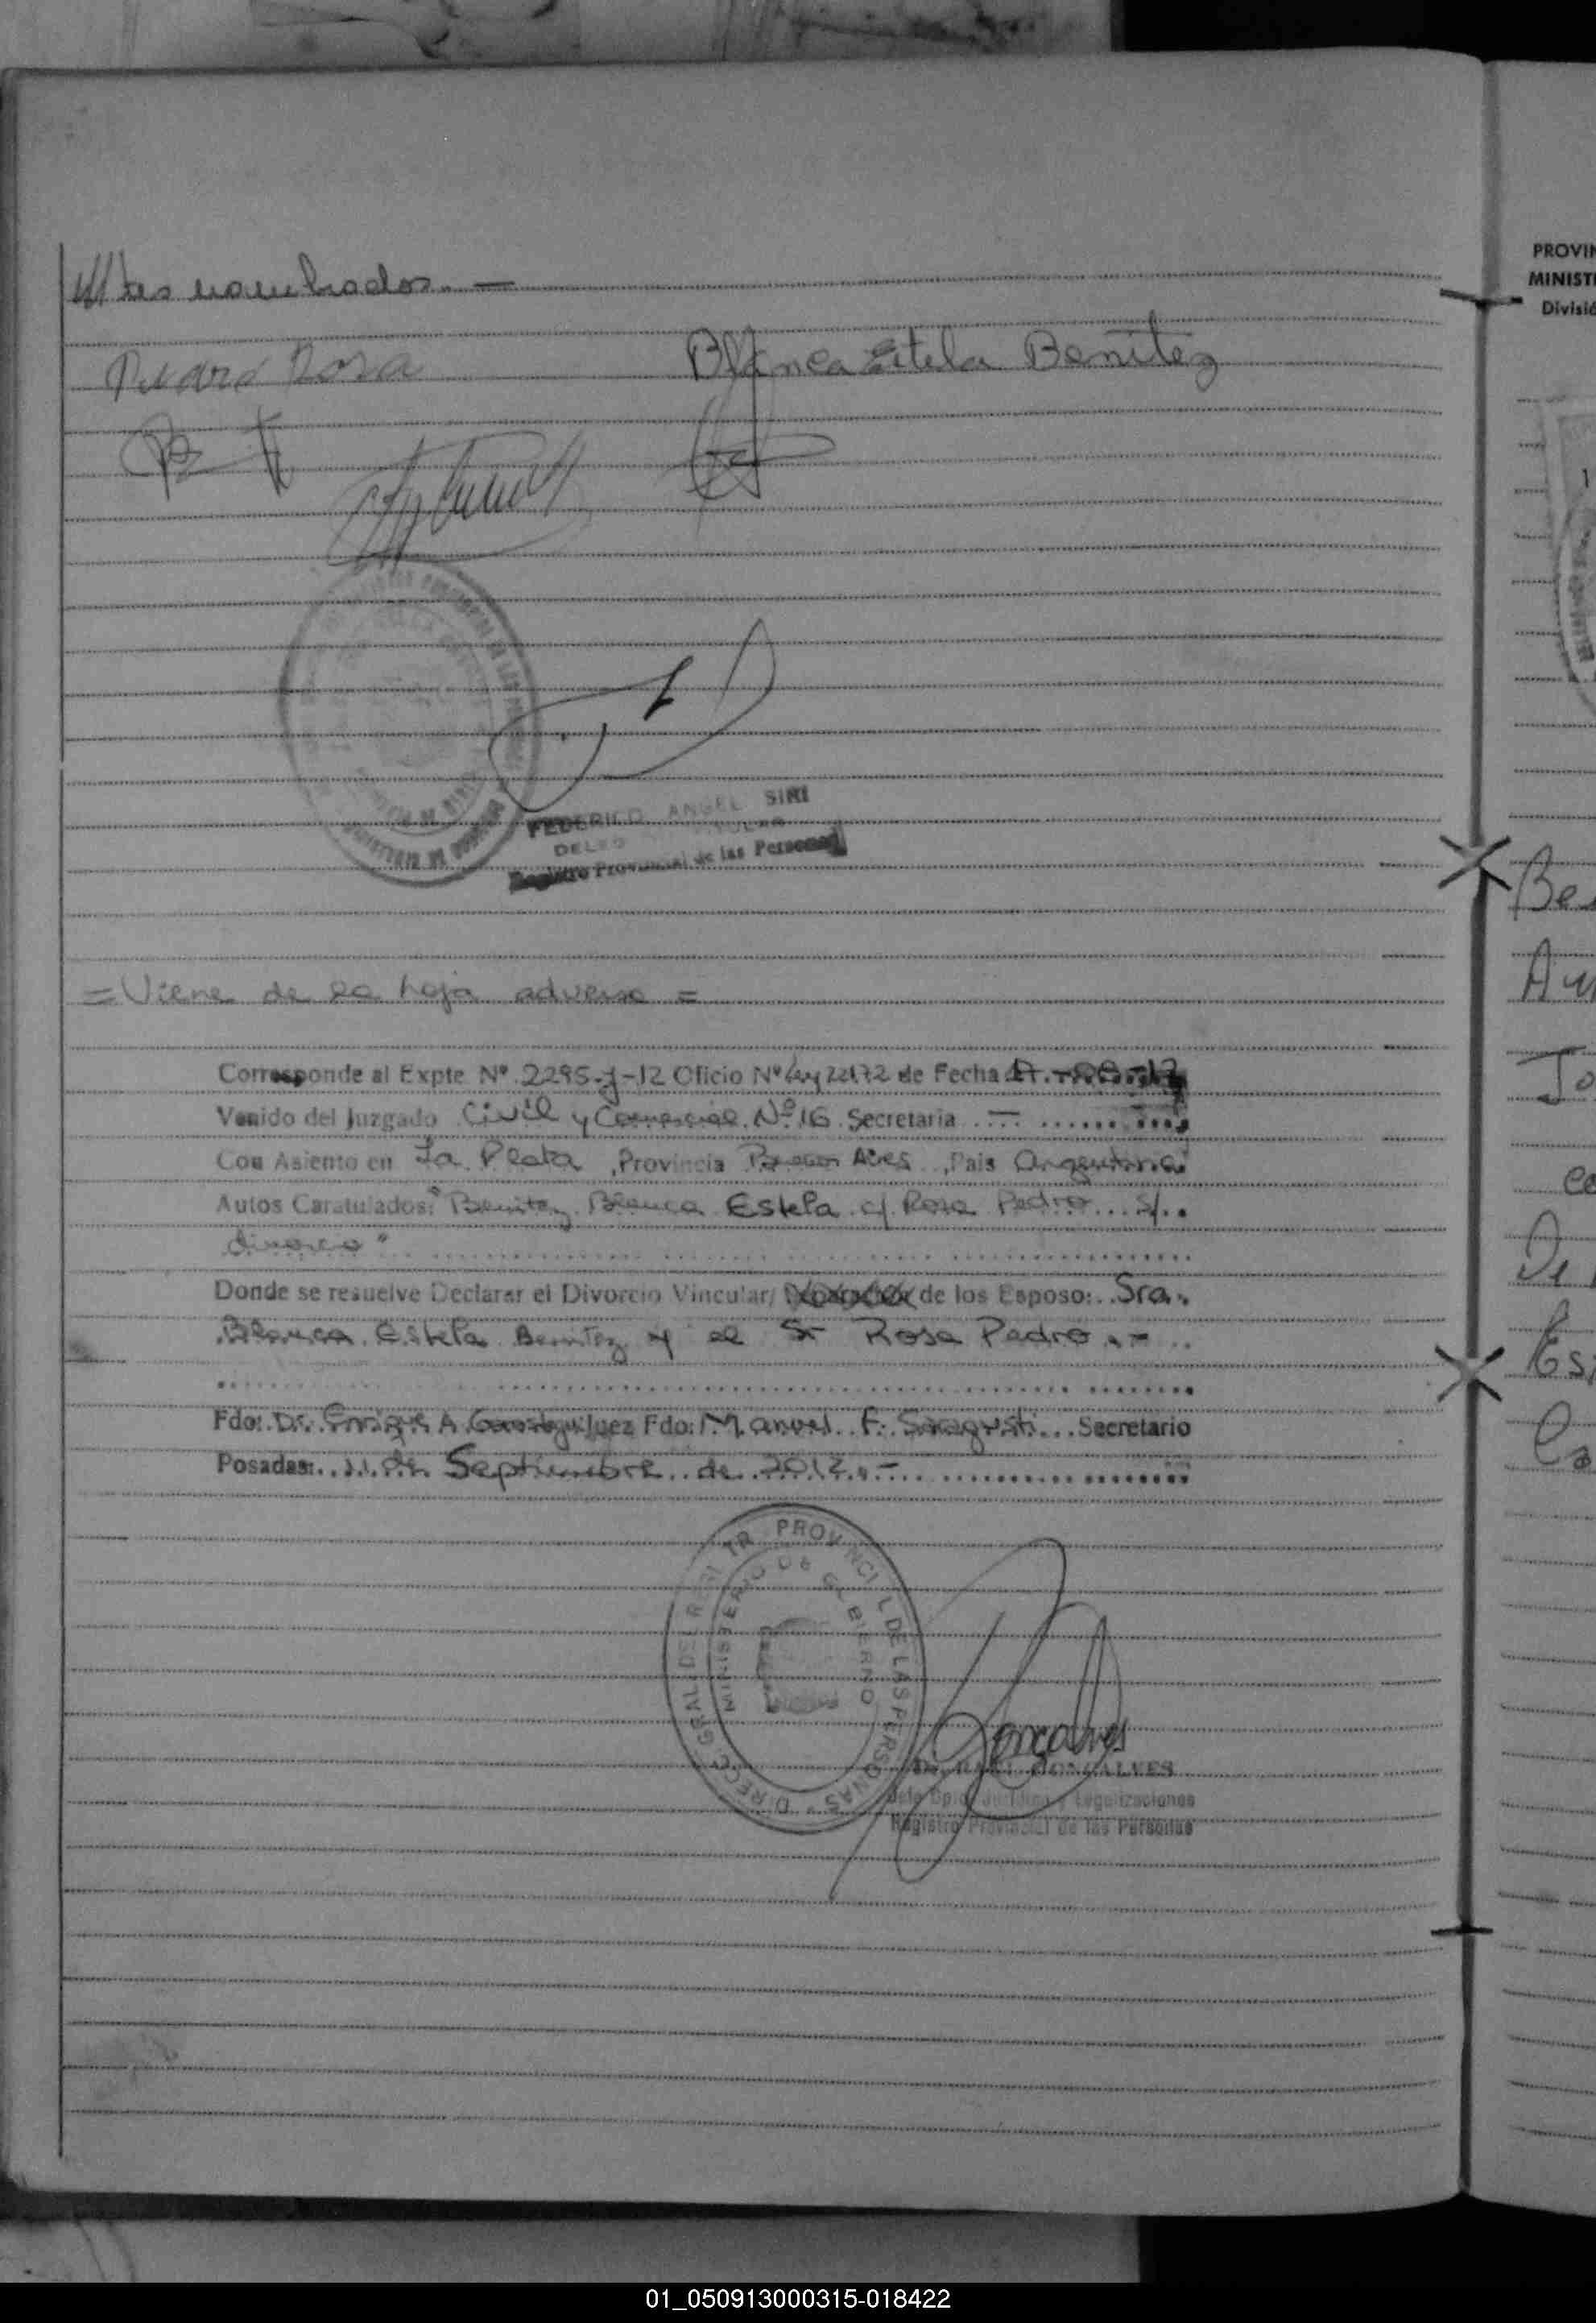 ///tes nombrados. —
Pedro Rosa Blanca Estela Benitez
FEDERICO ANGEL SIRI
Registro Provincial de las Personas
= Viene de la hoja adversa =
Corresponde al Expte Nº 2295-J-12 Oficio Nº Ley 22172 de Fecha
Venido del Juzgado Civil y Comercial Nº 16 Secretaria —
Con Asiento en La Plata, Provincia Buenos Aires, Pais Argentina
Autos Caratulados: "Benitez Blanca Estela c/ Rosa Pedro S/
divorcio"
Donde se resuelve Declarar el Divorcio Vincular/ de los Esposo: Sra.
Blanca Estela Benitez y el Sr Rosa Pedro.-
Fdo: Dr. Enrique A. Juez Fdo: Manuel F. Saragusti Secretario
Posadas: 11 de Septiembre de 2012.-
DIRECC GRAL DE REGISTRO PROVINCIAL DE LAS PERSONAS
MINISTERIO DE GOBIERNO
Goncalves
GONCALVES
Jefe Dpto. Jurídico y Legalizaciones
Registro Provincial de las Personas
PROVIN
MINISTE
Divisió
01_050913000315-018422